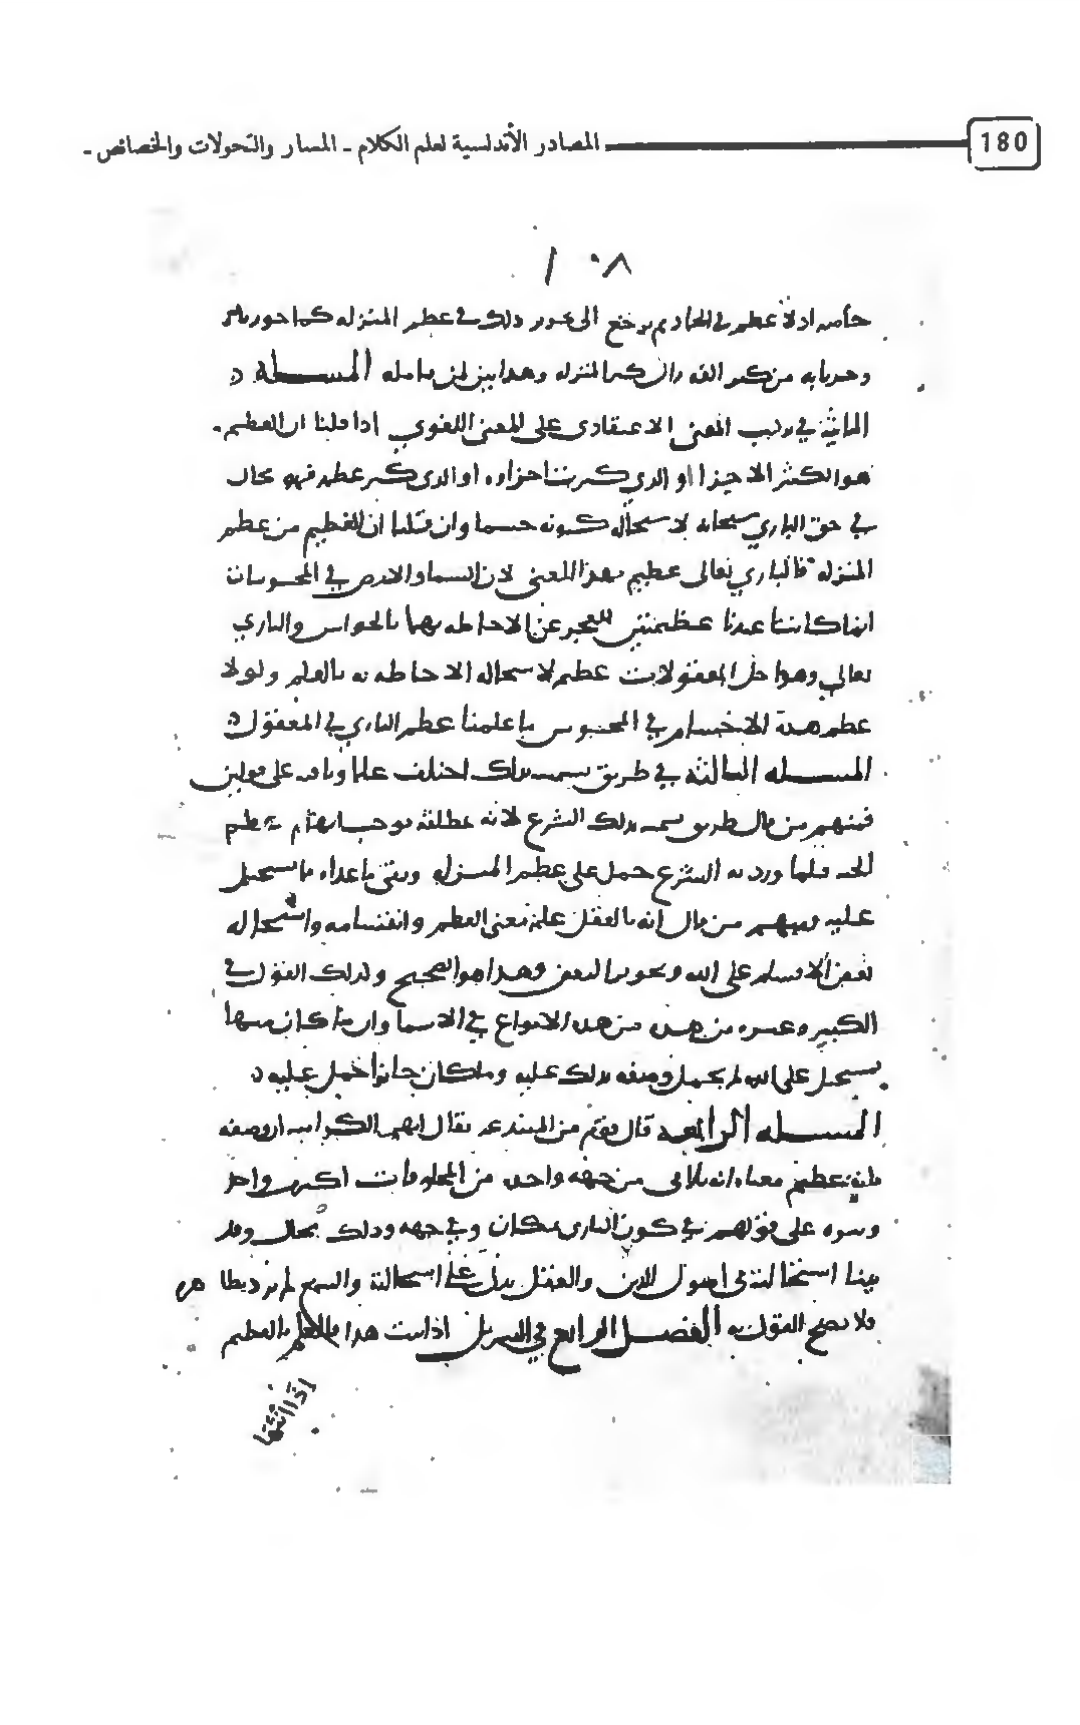 180 المصادر الأندلسية لعلم الكلام ـ المسار والتحولات والخصائص ـ
١٠٨
عظم في عظم المنزله كما
وهدا بين لمن تامله المسله
الثانية في ترتيب المعنى الاعتقادي على المعنى اللغوي اذا قلنا ان العظيم
هو الكثير الاجزا او الذي كبرت اجزاوه او الذي كبر عظمه فهو محال
في حق الباري سبحانه لاستحالة كونه جسما وان قلنا ان العظيم من عظم
المنزله فالباري تعالى عظيم بهذا المعنى لان السما والارض في المحسوسات
انما كانتا عندنا عظيمتين للعجز عن الاحاطه بهما بالحواس والباري
تعالى وهو اجل المعقولات عظم لاستحاله الاحاطه به بالعلم ولولا
عظم هذة الاجسام في المحسوس ما علمنا عظم الباري في المعقول
المسله الثالثة في طريق تسميته بذلك اختلف علماونا فيه على قولين
فمنهم من قال طريق تسميته بذلك الشرع لانه مطلقه يوجب ايهام عظم
الجثه فلما ورد به الشرع حمل على عظم المنزله ونفي ما عداه مما يستحيل
عليه ومنهم من قال انه بالعقل علم معنى العظم وانقسامه واستحاله
بعض الاقسام على الله وتجويز البعض وهذا هو الصحيح وكذلك القول في
الكبير وغيره من هذه الانواع في الاسما وان ما كان منها
يستحيل على الله لم يحمل وصفه بذلك عليه وما كان جائزا حمل عليه
المسله الرابعه قال قوم من المبتدعه يقال لهم الكراميه ان وصفه
بانه عظيم معناه انه يلاقي من جهه واحده من المخلوقات اكثر من واحد
وبنوه على قولهم في كون الباري بمكان وفي جهه وذلك محال وقد
بينا استحالته في اصول الدين والعقل يدل على استحالته والسمع لم يرد بهذا
فلا يصح القول به الفصل الرابع في التنزيل اذا ثبت هذا فالعلم بالعظيم